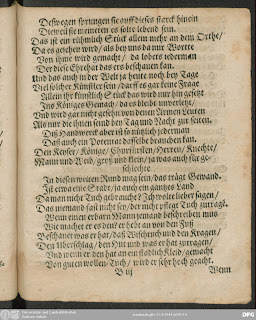 Deswegen sprungen sie auff dieses starck hinein
Die weil sie meineten es solte lebend sein.
Das ist ein rühmlich Stück allein mehr an dem Orthe/
Da es gesehen wird/ als bey uns da nur Worte
Von ihme wird gemacht/ da lobets jederman
Der diese Ehre hat das ers beschauen kan.
Und das auch in der Welt ja heute noch bey Tage
Viel solcher Künstler sein/ darff es gar keine Frage
Allein ihr künstlich Stück das wird nur hin gesetzt
Ins Königes Gemach/ da es bleibt unverletzt/
Und wird gar nicht gesehn von denen Armen Leuten
Als nur die ihnen sind bey Tag und Nacht zur seiten.
Diß Handwerck aber ist so nützlich jederman
Das auch ein Potentat dasselbe brauchen kan.
Den Keyser/ Könige/ Churfürsten/ Herren/ Knechte/
Mann und Weib/ groß und klein/ ja was auch für geschlechte
In diesen weiten Rund mag sein/ das trägt Gewand.
Ist etwa eine Stadt/ ja auch ein gantzes Land
Da man nicht Tuch gebrauche? Ich wolte lieber sagen/
Das niemand fast nicht sey/ der nicht pflegt Tuch zutragē.
Wenn einen erbarn Mann jemand beschreiben mus
Wie macher er es denn/ er hebt an von den Fuß
Beschauet was er hat/ das Wischtuch und den Kragen/
Den Uberschlag/ den Hut und was er hat zutragen/
Und wenn er den hat an ein stadtlich Kleid/ gemacht
Von guten wollen Tuch/ wird er sehr hoch geacht.
B iij
Wenn
Universitäts- und Landesbibliothek
Sachsen-Anhalt
DFG